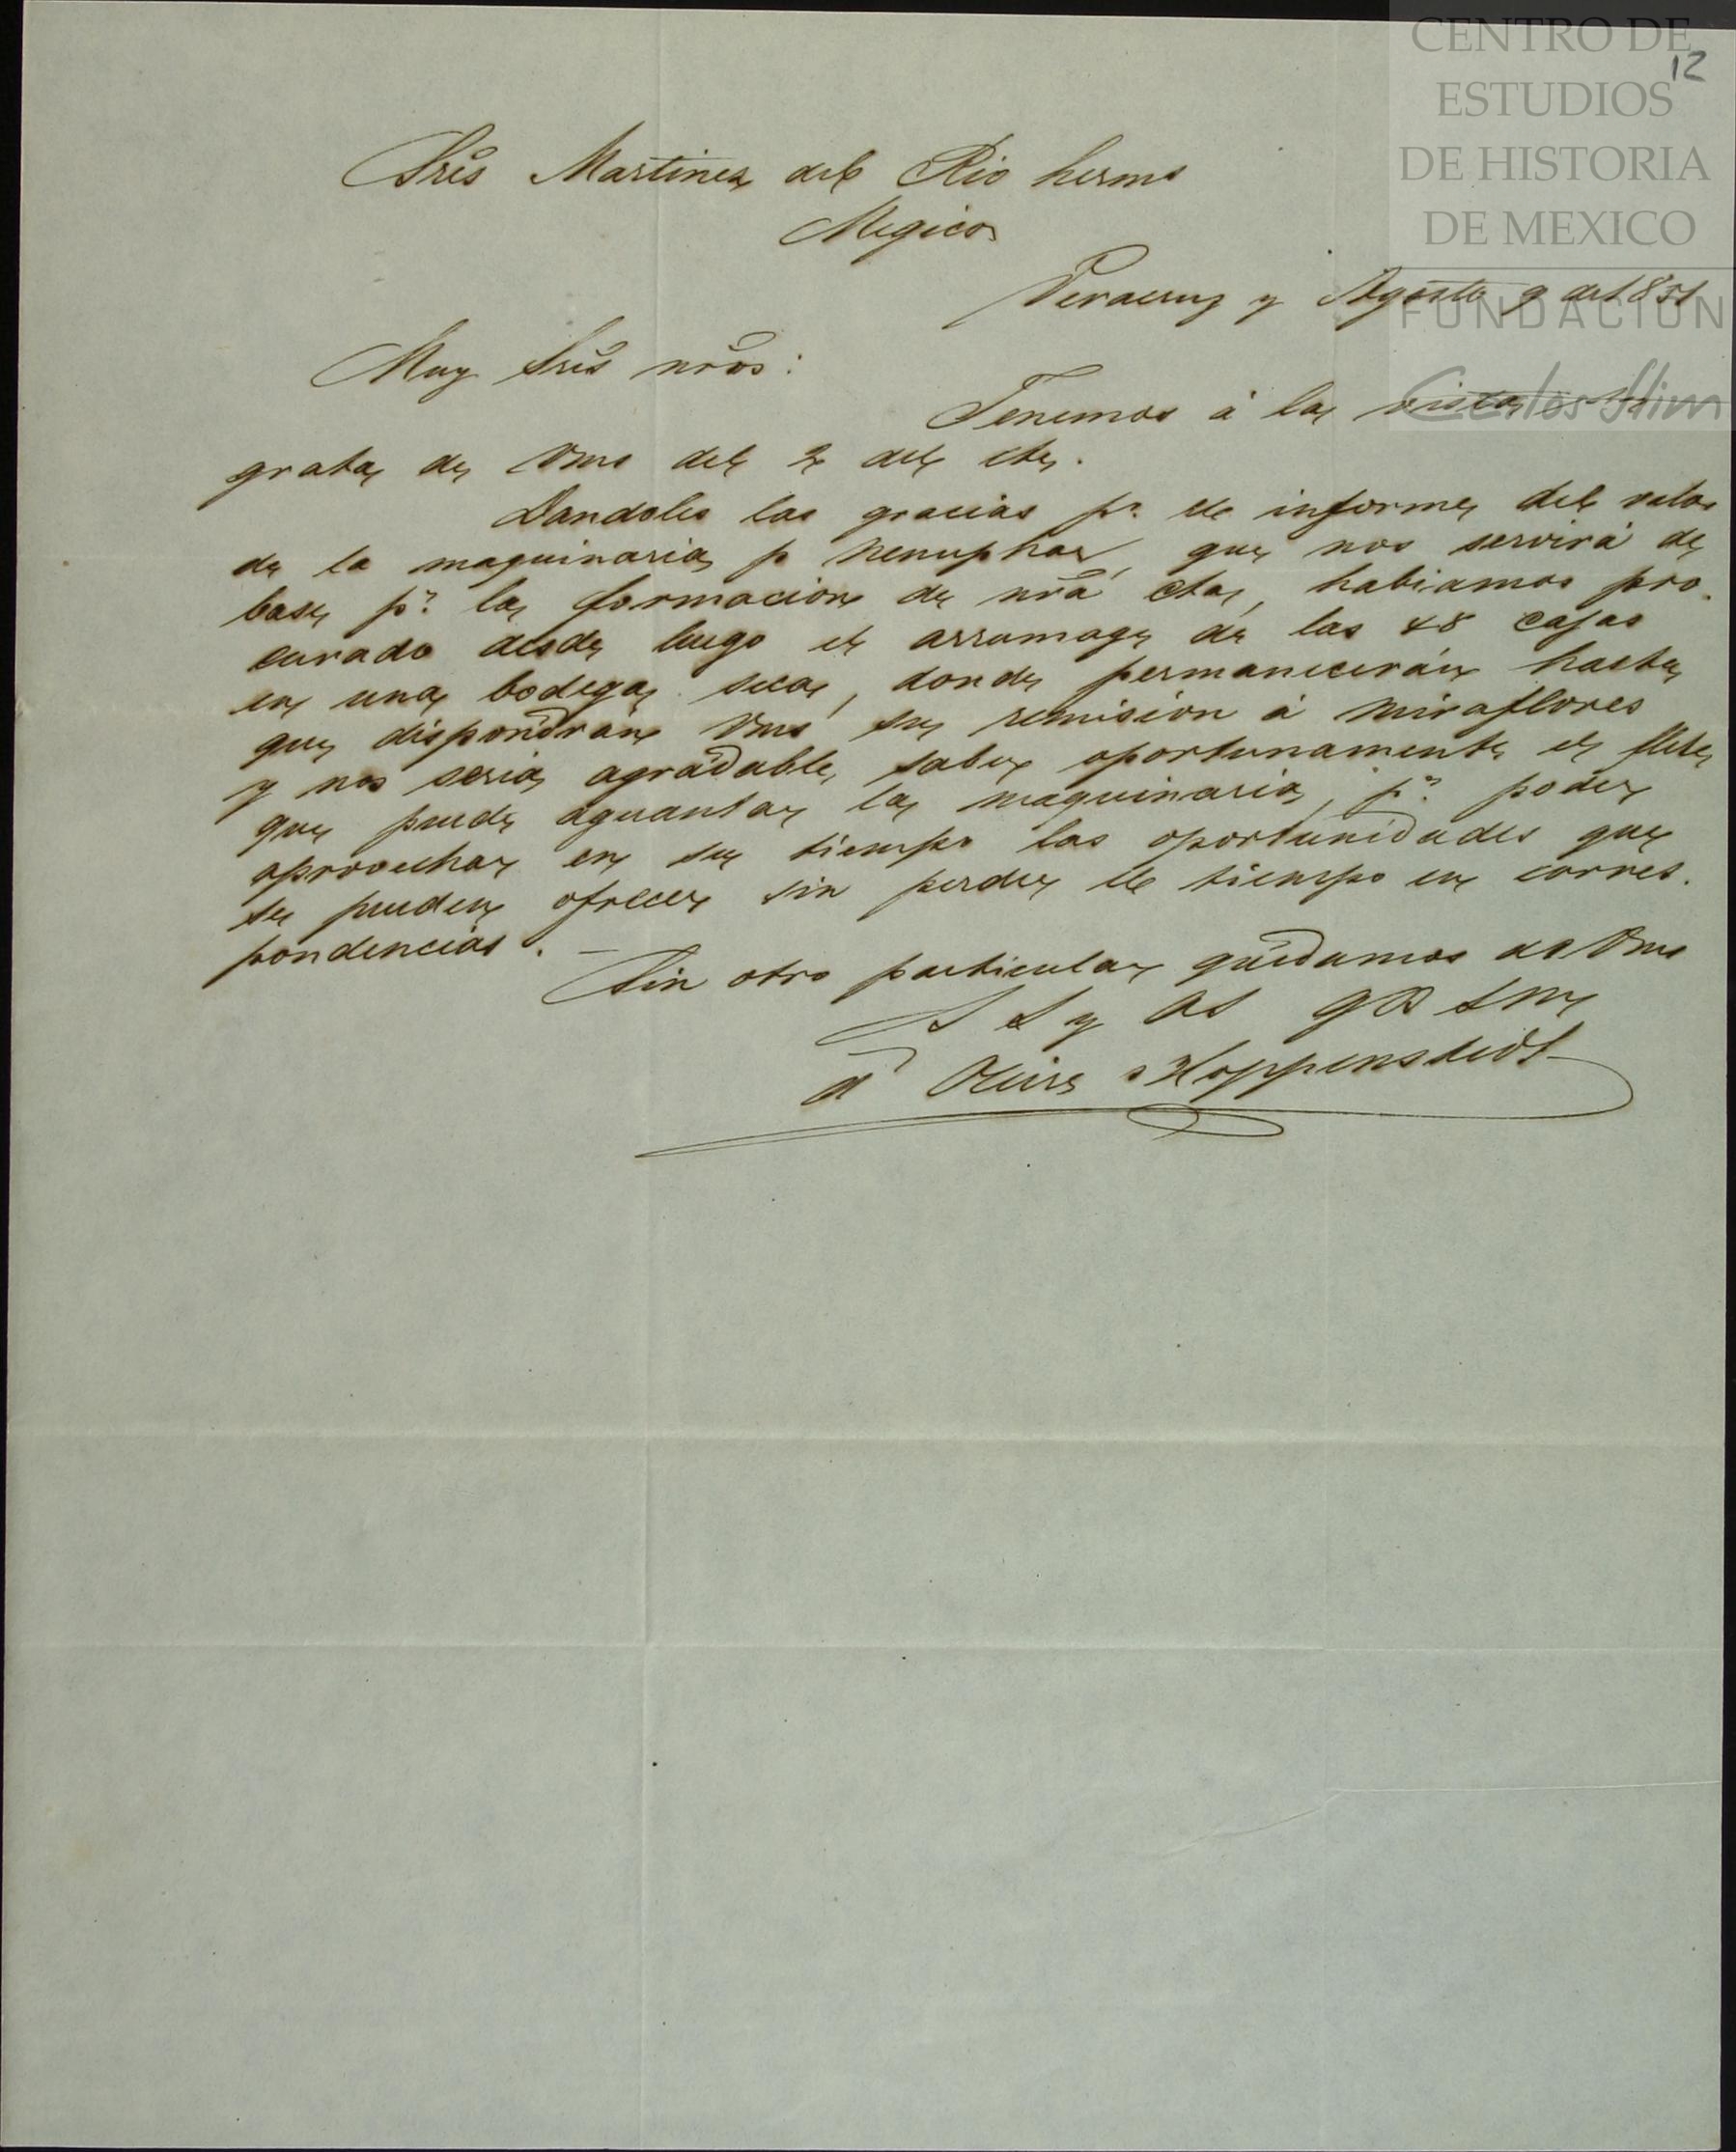 CENTRO DE
ESTUDIOS
DE HISTORIA
DE MEXICO
FUNDACIÓN
Carlos Slim
12
Sres Martinez del Rio hermo
Megico
Veracruz y Agosto 9 de 1851
Muy Sres nros:
Tenemos á la vista
grata de Vms del 2 del cte.
Dandoles las gracias pr. el informe del valor
de la maquinaria p Nenuphar, que nos servirá de
base pa. la formacion de nra cta, habiamos pro-
curado desde luego el arrumage de las 48 cajas
en una bodega seca, donde permanecerán hasta
que dispondran Vms su remision á Miraflores
y nos seria agradable, saber oportunamente el flete,
que puede aguantar la maquinaria, pa. poder
aprovechar en su tiempo las oportunidades que
se pueden ofrecer sin perder el tiempo en corres-
pondencias. –
Sin otro particular quedamos de Vms
S S y AS q B S M
d' Oleire Hoppenstedt